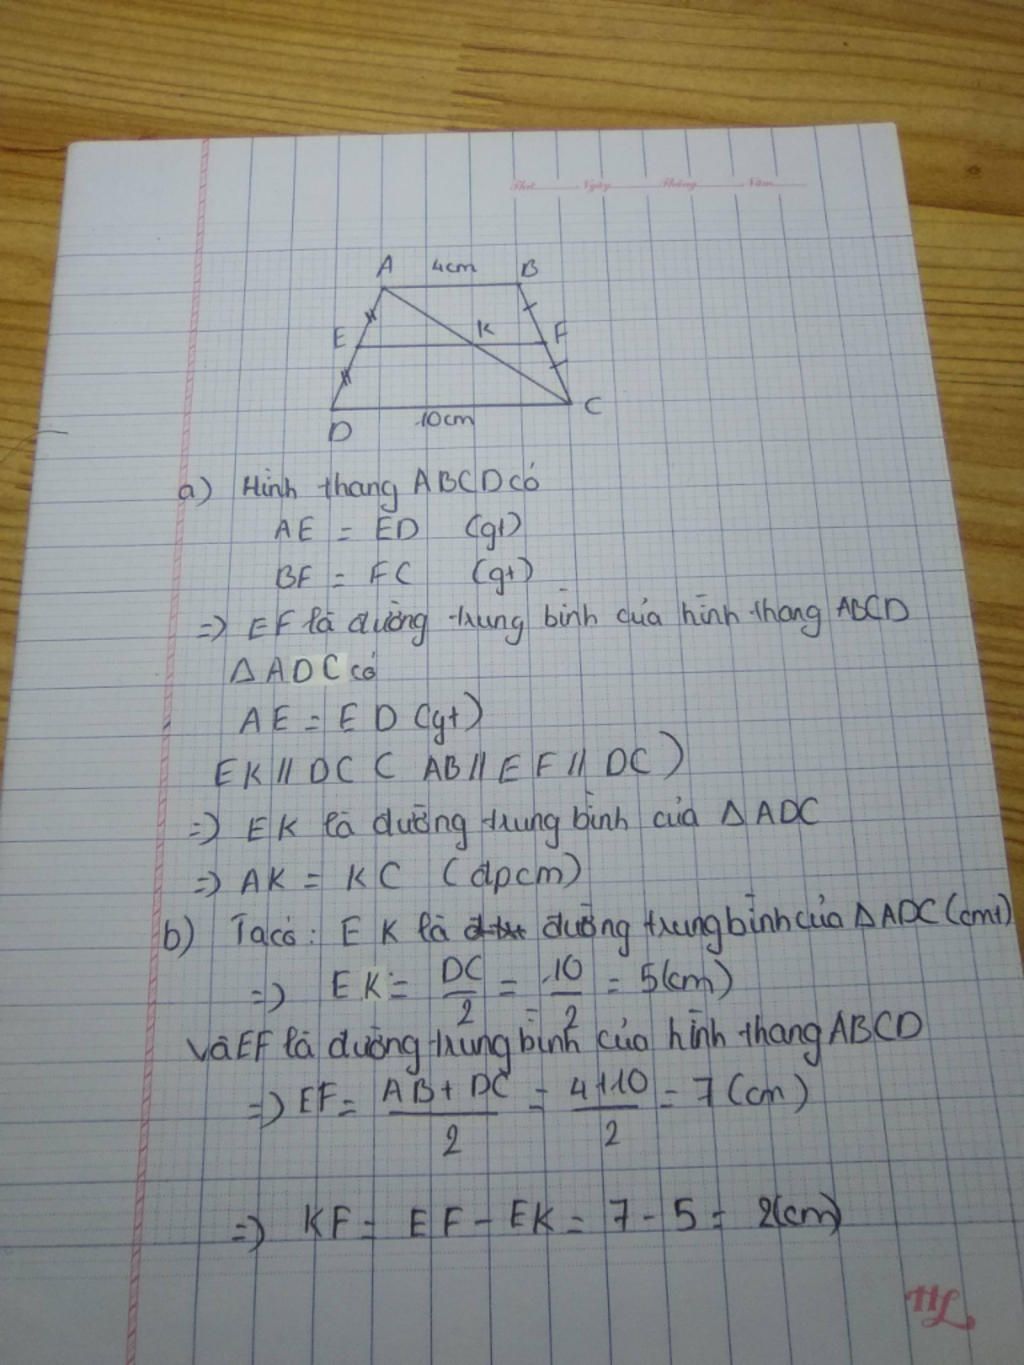 Thứ Ngày Tháng Năm
A 4cm B
E K F
D 10cm C
a) Hình thang ABCD có
AE = ED (gt)
BF = FC (gt)
=> EF là đường trung bình của hình thang ABCD
Δ ADC có
AE = ED (gt)
EK // DC ( AB // EF // DC )
=> EK là đường trung bình của Δ ADC
=> AK = KC (đpcm)
b) Ta có: EK là đường trung bình của Δ ADC (cmt)
=> EK = DC/2 = 10/2 = 5(cm)
Và EF là đường trung bình của hình thang ABCD
=> EF = AB + DC/2 = 4+10/2 = 7 (cm)
=> KF = EF - EK = 7 - 5 = 2(cm)
HL